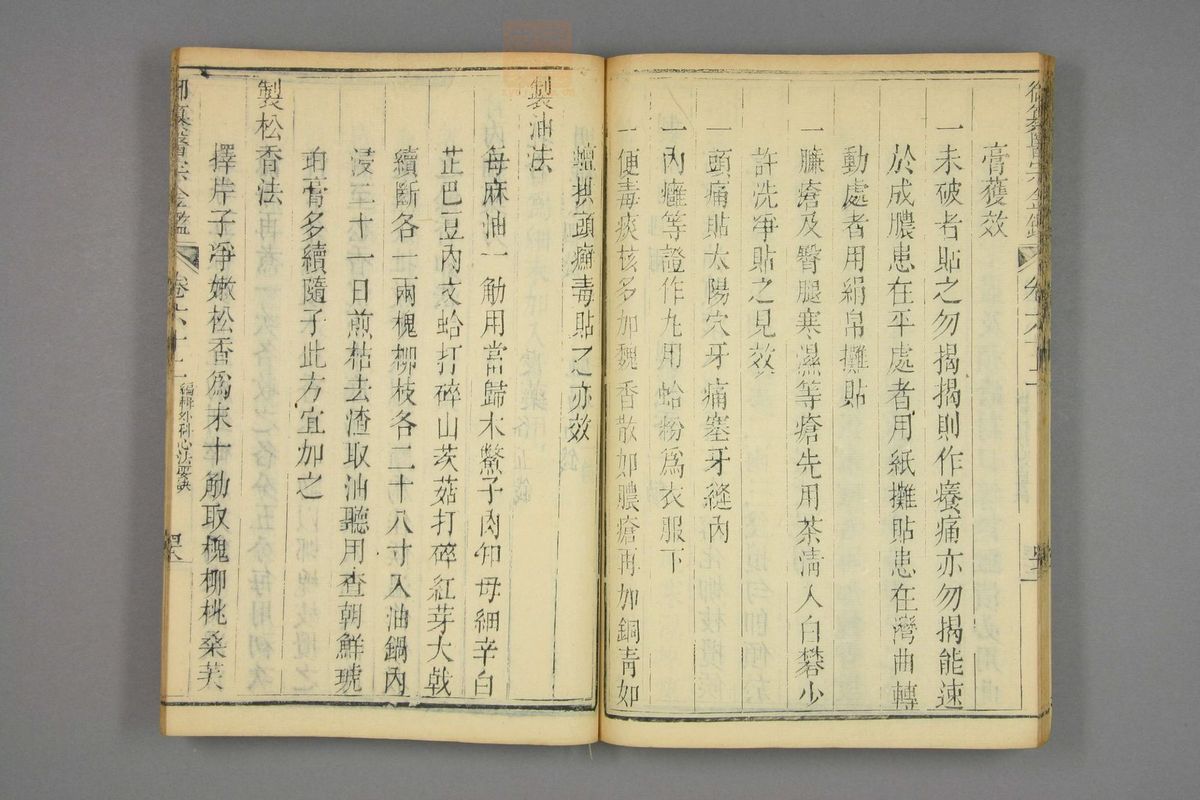 膏獲效
一未破者貼之勿揭揭則作癢痛亦勿揭能速
於成膿患在平處者用紙攤貼患在灣曲轉
動處者用絹帛攤貼
一臁瘡及臀腿寒濕等瘡先用茶清入白礬少
許洗淨貼之見效
一頭痛貼太陽穴牙痛塞牙縫內
一內癰等證作丸用蛤粉爲衣服下
一便毒痰核多加魏香散如膿瘡再加銅青如
蟮拱頭癬毒貼之亦效
製油法
每麻油一觔用當歸木鱉子肉知母細辛白
芷巴豆肉文蛤打碎山茨菇打碎紅芽大戟
續斷各一兩槐柳枝各二十八寸入油鍋內
浸二十一日煎枯去渣取油聽用查朝鮮琥
珀膏多續隨子此方宜加之
製松香法
擇片子淨嫩松香爲末十觔取槐柳桃桑芙
御纂醫宗金鑑 卷六十二 編輯外科心法要訣